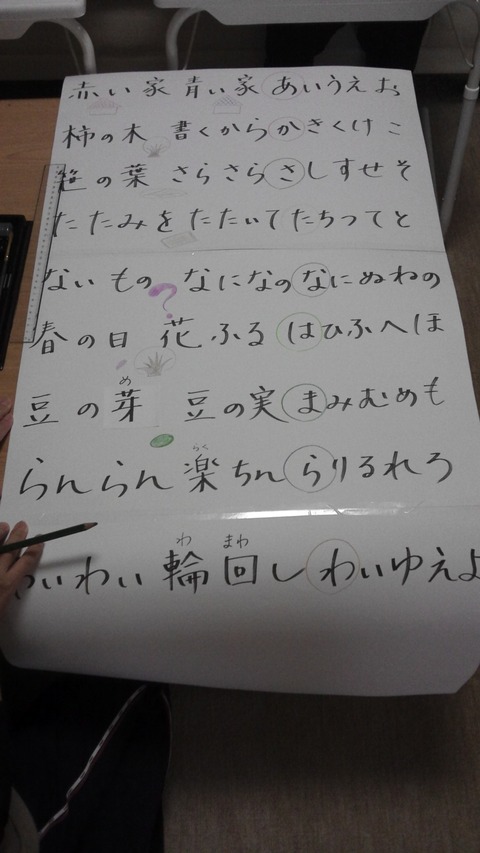 赤い家 青い家 あいうえお
柿の木 書くから かきくけこ
笹の葉 さらさら さしすせそ
たたみを たたいて たちつてと
ないもの なになの なにぬねの
春の日 花ふる はひふへほ
豆の芽 豆の実 まみむめも
め
らんらん 楽ちん らりるれろ
らく
わいわい 輪回し わいゆえよ
わ まわ